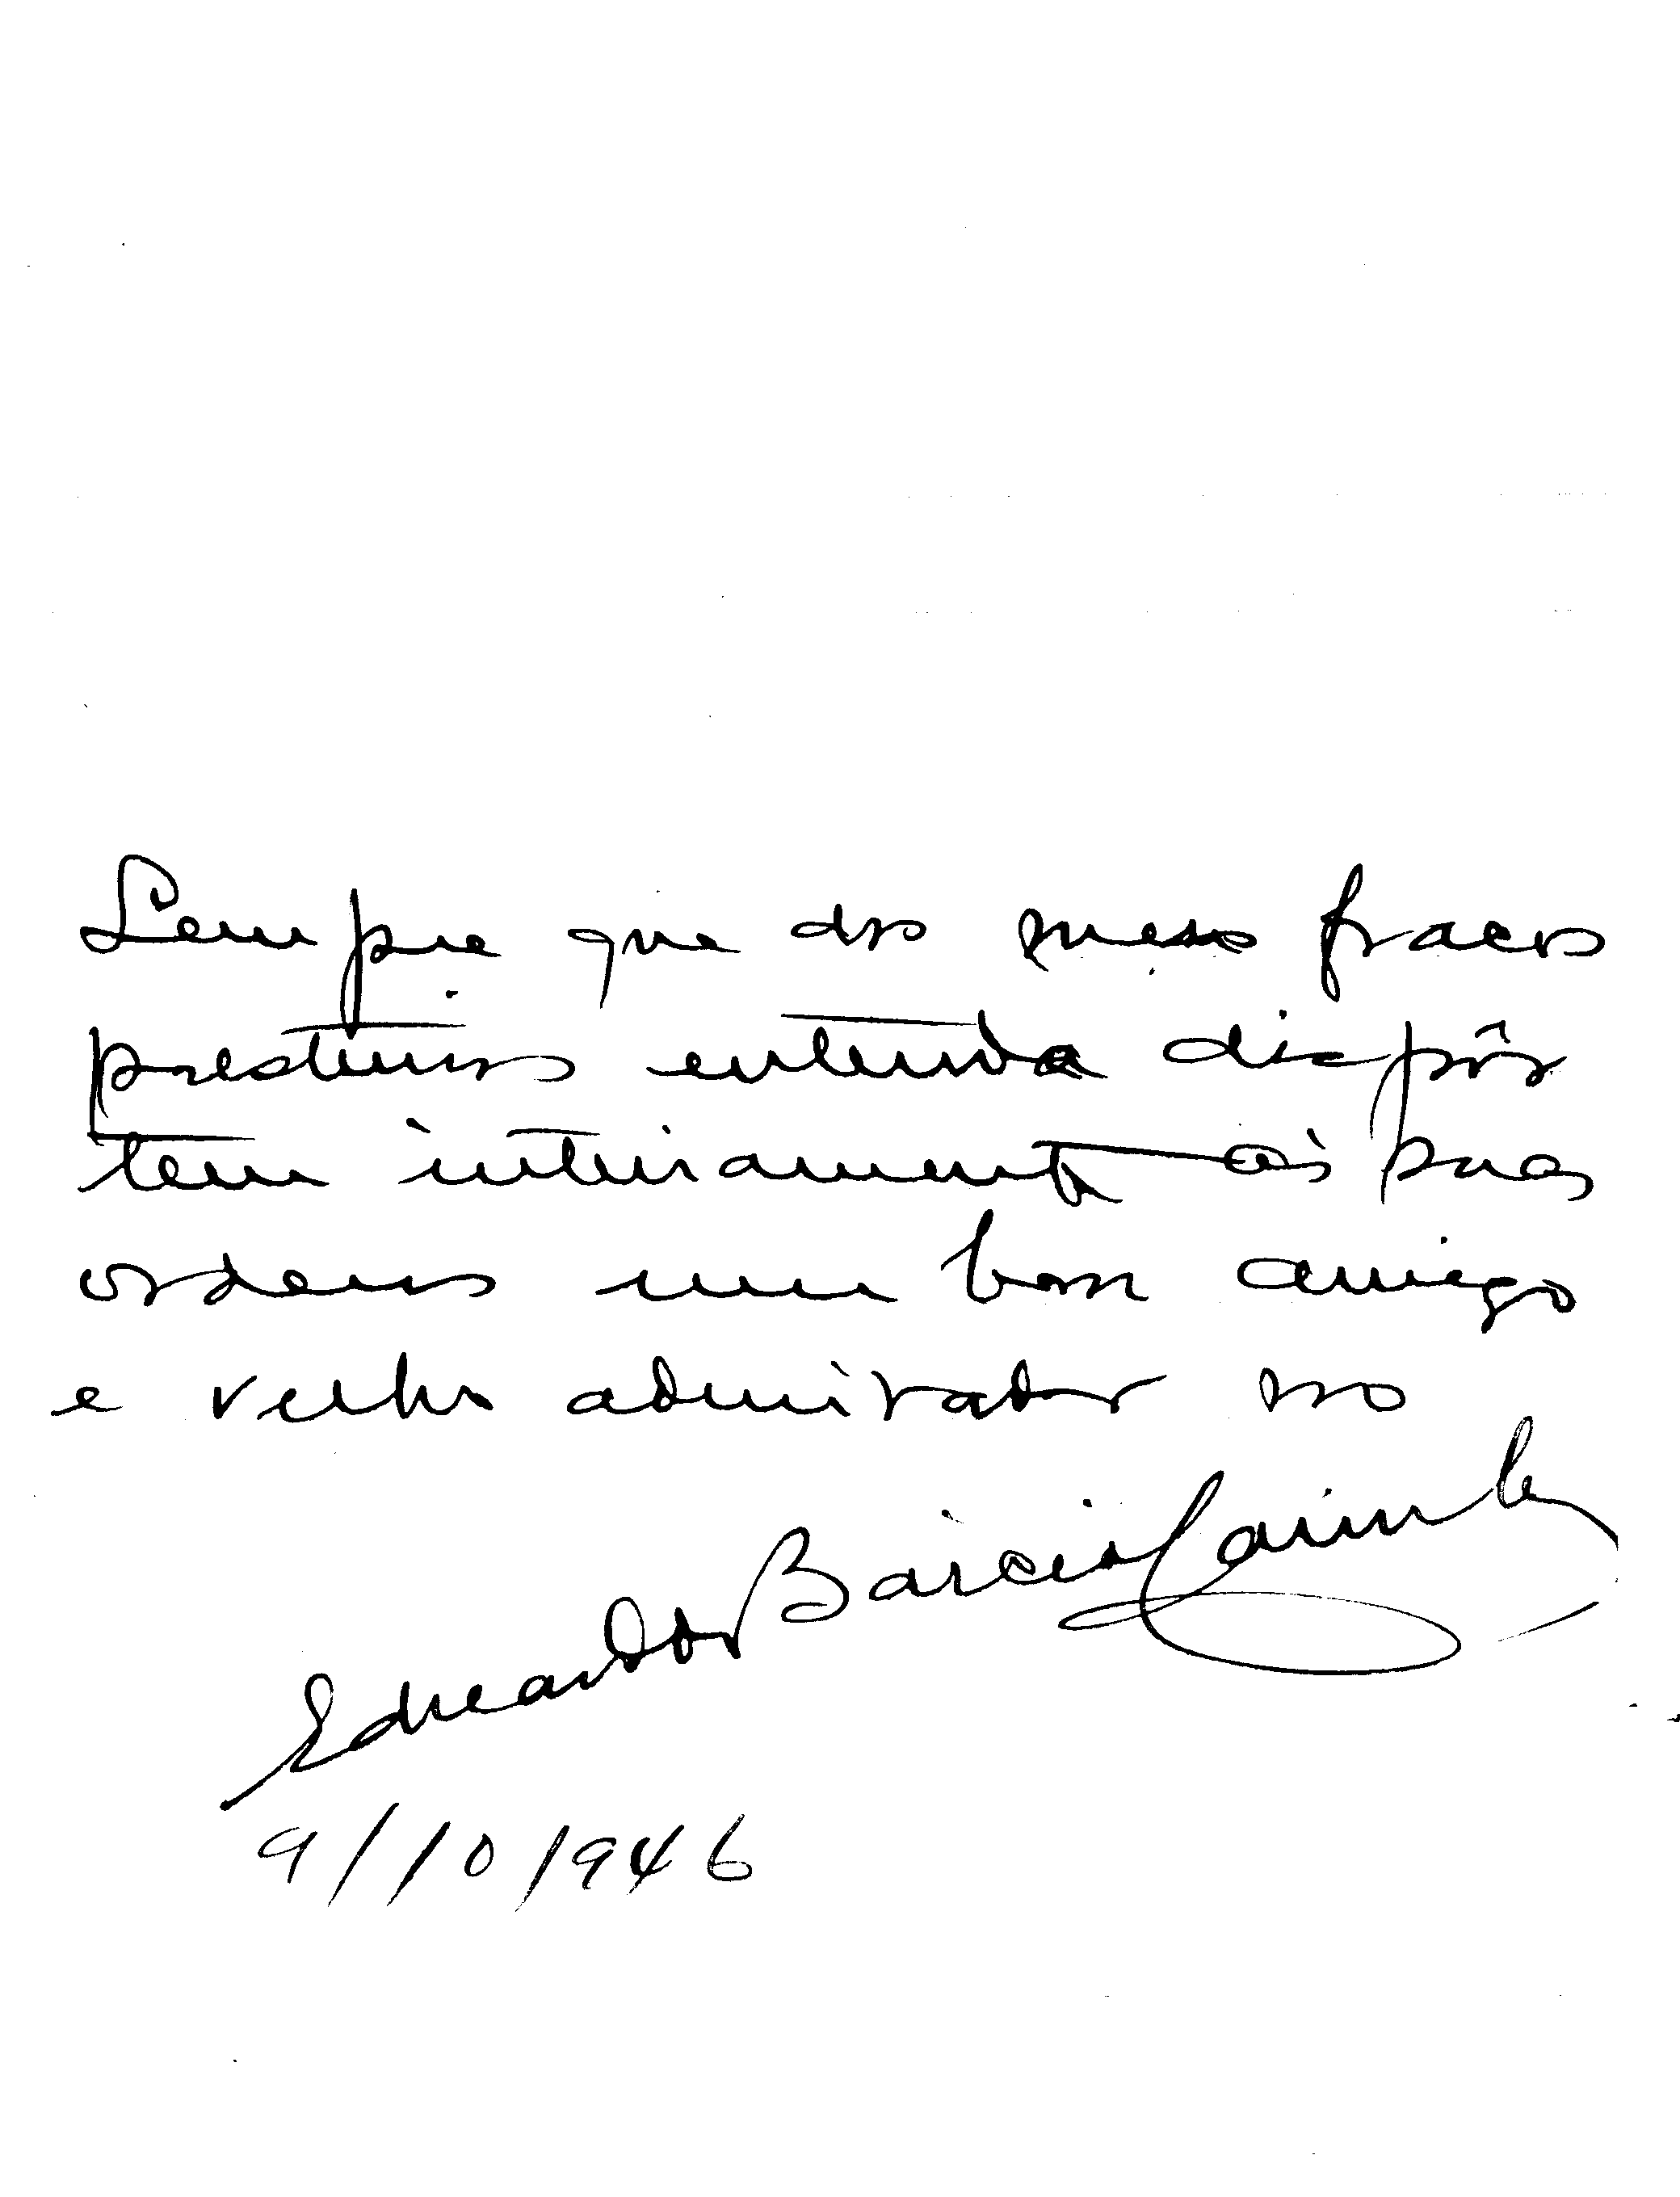 Sempre que dos meus fracos
prestimos entenda dispôr
tem inteiramente ás suas
ordens um bom amigo
e velho admirador no
Eduardo Garcia
9/10/946